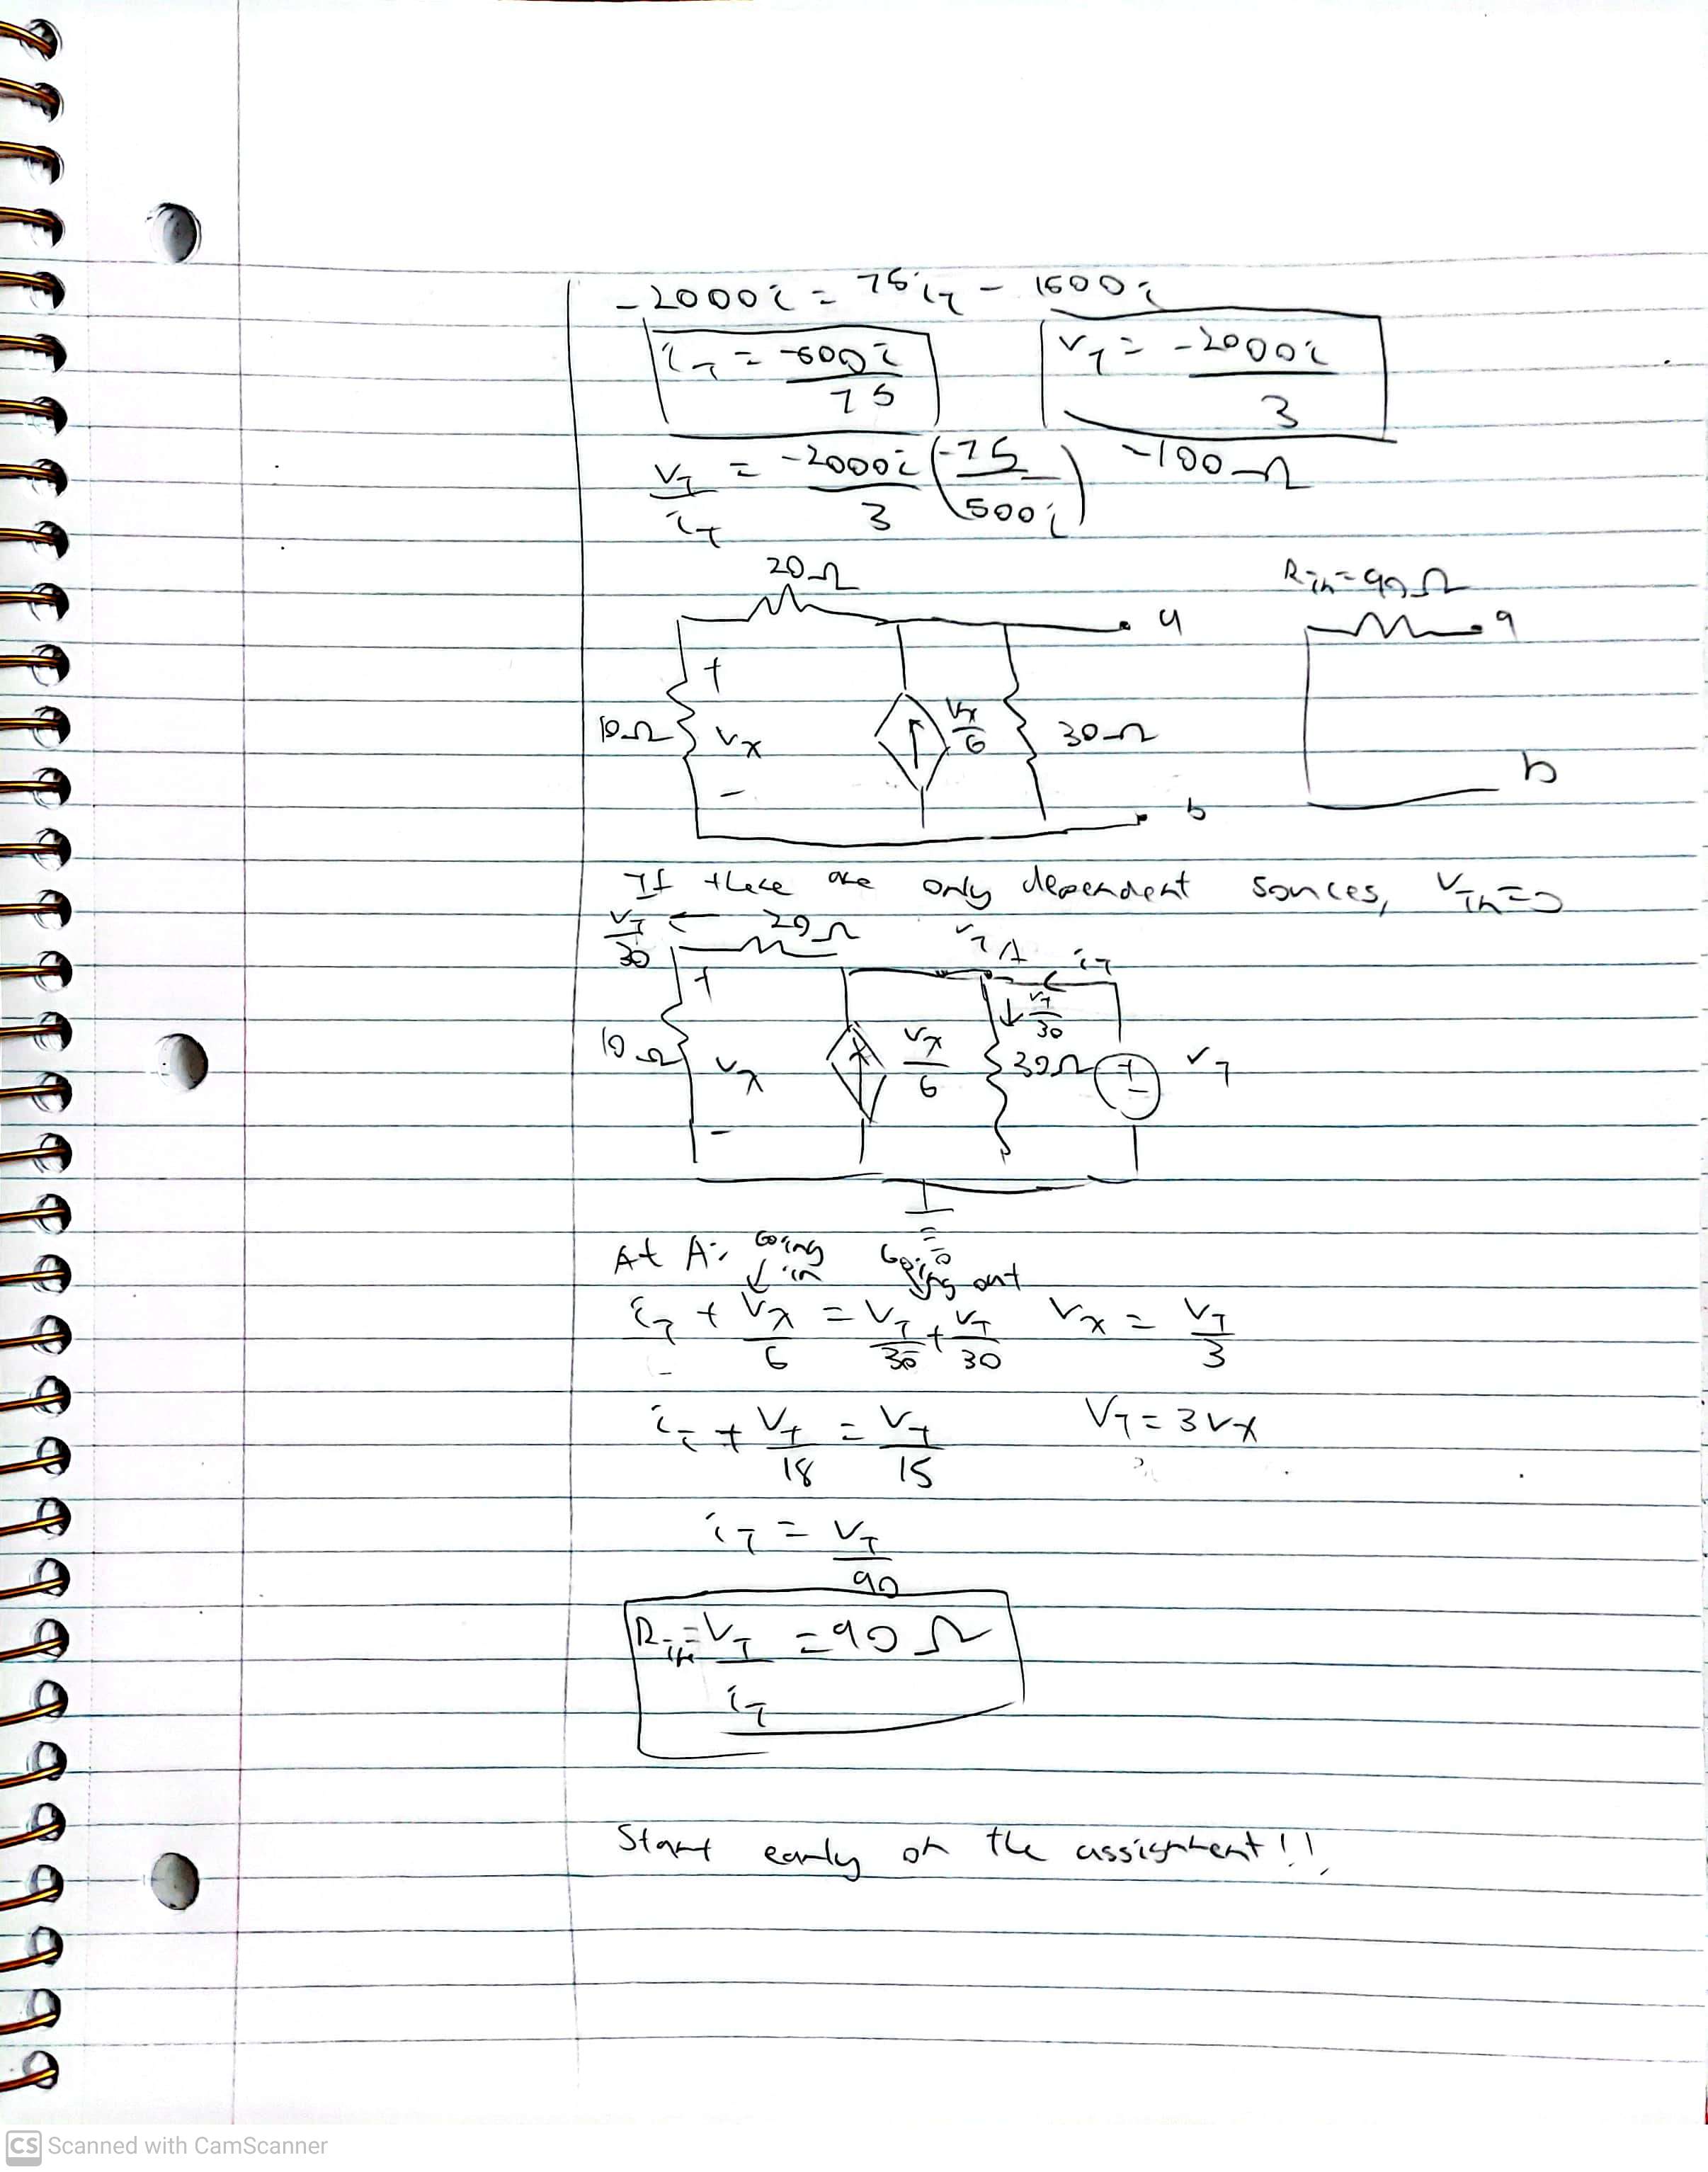 -2000i = 75i_T - 1500i
i_T = -500i/75    V_T = -2000i/3
V_T/i_T = -2000i/3 (-75/500i)    -100Ω
20Ω    R_Th = 90Ω
a    a
+
10Ω    Vx    Vx/6    30Ω
-    b    b
If there are only dependent sources, V_Th = 0
V_T/30 ← 20Ω    V_T A    i_T
+    ↓ V_T/30
10Ω    Vx    Vx/6    30Ω    + -    V_T
-
At A:    Going in    Going out
i_T + Vx/6 = V_T/30 + V_T/30    Vx = V_T/3
i_T + V_T/18 = V_T/15    V_T = 3Vx
i_T = V_T/90
R_Th = V_T/i_T = 90Ω
Start early on the assignment!!
CS Scanned with CamScanner